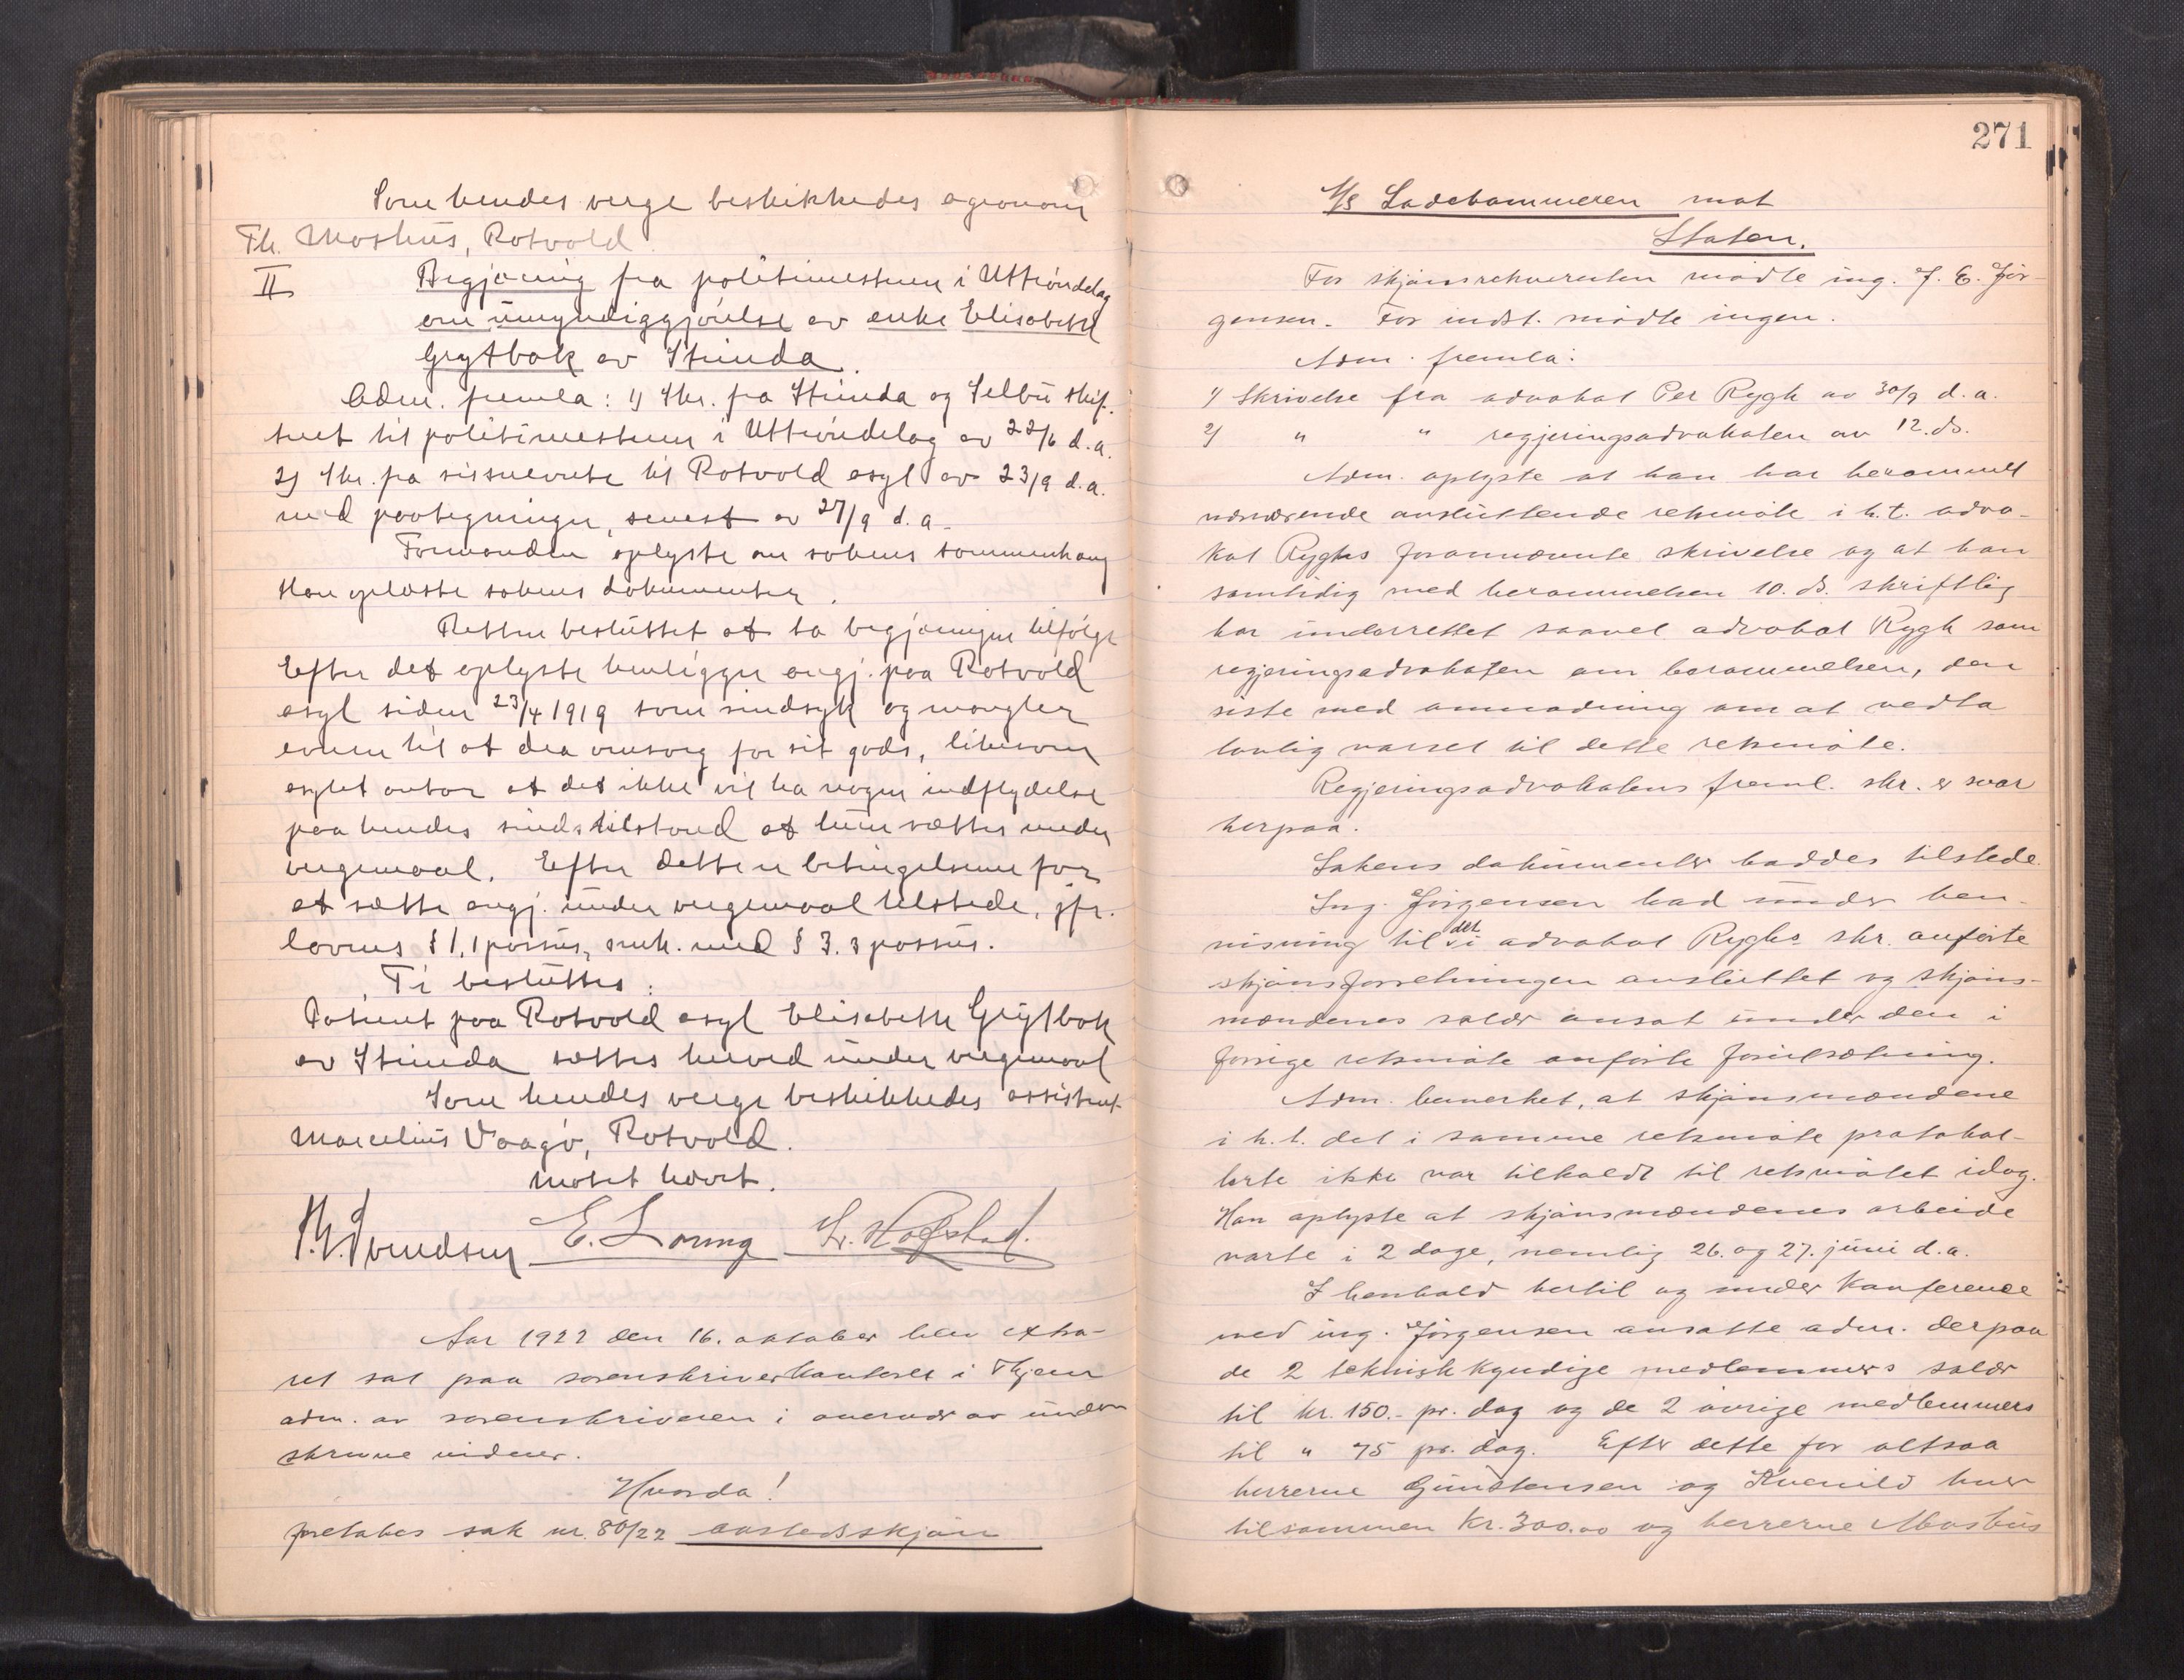 Som hendes verge beskikkedes agronom
Th. Moshus, Rotvold.
II Begjæring fra politimesteren i Uttrøndelag
om umyndiggjørelse av enke Elisabeth
Grytbak av Strinda.
Adm. fremla: 1) Skr. fra Strinda og Selbu skif-
teret til politimesteren i Uttrøndelag av 22/6 d.a.
2) Skr. fra sistnevnte til Rotvold asyl av 23/9 d.a.
med paategninger, senest av 27/9 d.a.
Formanden oplyste om sakens sammenhæng
Han oplæste sakens dokumenter.
Retten besluttet at ta begjæringen tilfølge
Efter det oplyste henligger angj. paa Rotvold
asyl siden 23/4 1919 som sindsyk og mangler
evnen til at dra omsorg for sit gods, likesom
asylet antar at det ikke vil ha nogen indflydelse
paa hendes sindstilstand at hun sættes under
vergemaal. Efter dette er betingelserne for
at sætte angj. under vergemaal tilstede, jfr.
lovens § 1, 1 passus, smh. med § 3. 3 passus.
Ti besluttes:
Patient paa Rotvold asyl Elisabeth Grytbak
av Strinda sættes herved under vergemaal
Som hendes verge beskikkedes assistent
Marcelius Vaagø, Rotvold.
Møtet hævet.
Svendsen E. Loring L. Hofstad.
Aar 1922 den 16. oktober blev extra-
ret sat paa sorenskriverkontoret i Thjem
adm. av sorenskriveren i overvær av under
skrevne vidner.
Hvorda!
foretokes sak nr. 80/22 anstedsskjøn
271
A/S Ladehammeren mot
Staten.
For skjønsrekvirenten mødte ing. J. E. Jør-
gensen. For indst. mødte ingen.
Adm. fremla:
1) Skrivelse fra advokat Per Rygh av 30/9 d.a.
2) " " regjeringsadvokaten av 12. ds.
Adm. oplyste at han har berammet
nærværende avsluttende retsmøte i h.t. advo-
kat Ryghs forannævnte skrivelse og at han
samtidig med berammelsen 10. ds. skriftlig
har underrettet saavel advokat Rygh som
regjeringsadvokaten om berammelsen, den
siste med anmodning om at vedta
lovlig varsel til dette retsmøte.
Regjeringsadvokatens freml. skr. er svar
herpaa.
Sakens dokumenter haddes tilstede.
Ing. Jørgensen bad under hen-
visning til det i advokat Ryghs skr. anførte
skjønsforretningen avsluttet og skjøns-
mændenes salær ansat under den i
forrige retsmøte anførte forutsætning.
Adm. bemerket, at skjønsmændene
i h.t. det i samme retsmøte protokol-
lerte ikke var tilkaldt til retsmøtet idag.
Han oplyste at skjønsmændenes arbeide
varte i 2 dage, nemlig 26. og 27. juni d.a.
I henhold hertil og under konference
med ing. Jørgensen ansatte adm. derpaa
de 2 teknisk kyndige medlemmers salær
til kr. 150.- pr. dag og de 2 øvrige medlemmers
til " 75 pr. dag. Efter dette før altsaa
herrerne Gundersen og Kvenild hver
tilsammen kr. 300.00 og herrerne Moshus